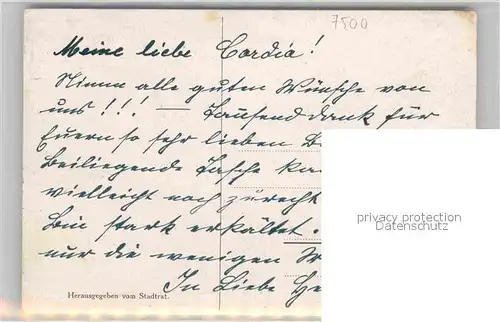 7500
Meine liebe Cordia!
Nimm alle guten Wünsche von
uns!!! — Tausend dank für
Euern so sehr lieben
Beiliegende Tasche
vielleicht noch zurecht
Bin stark erkältet.
nur die wenigen
In Liebe
privacy protection
Datenschutz
Herausgegeben vom Stadtrat.